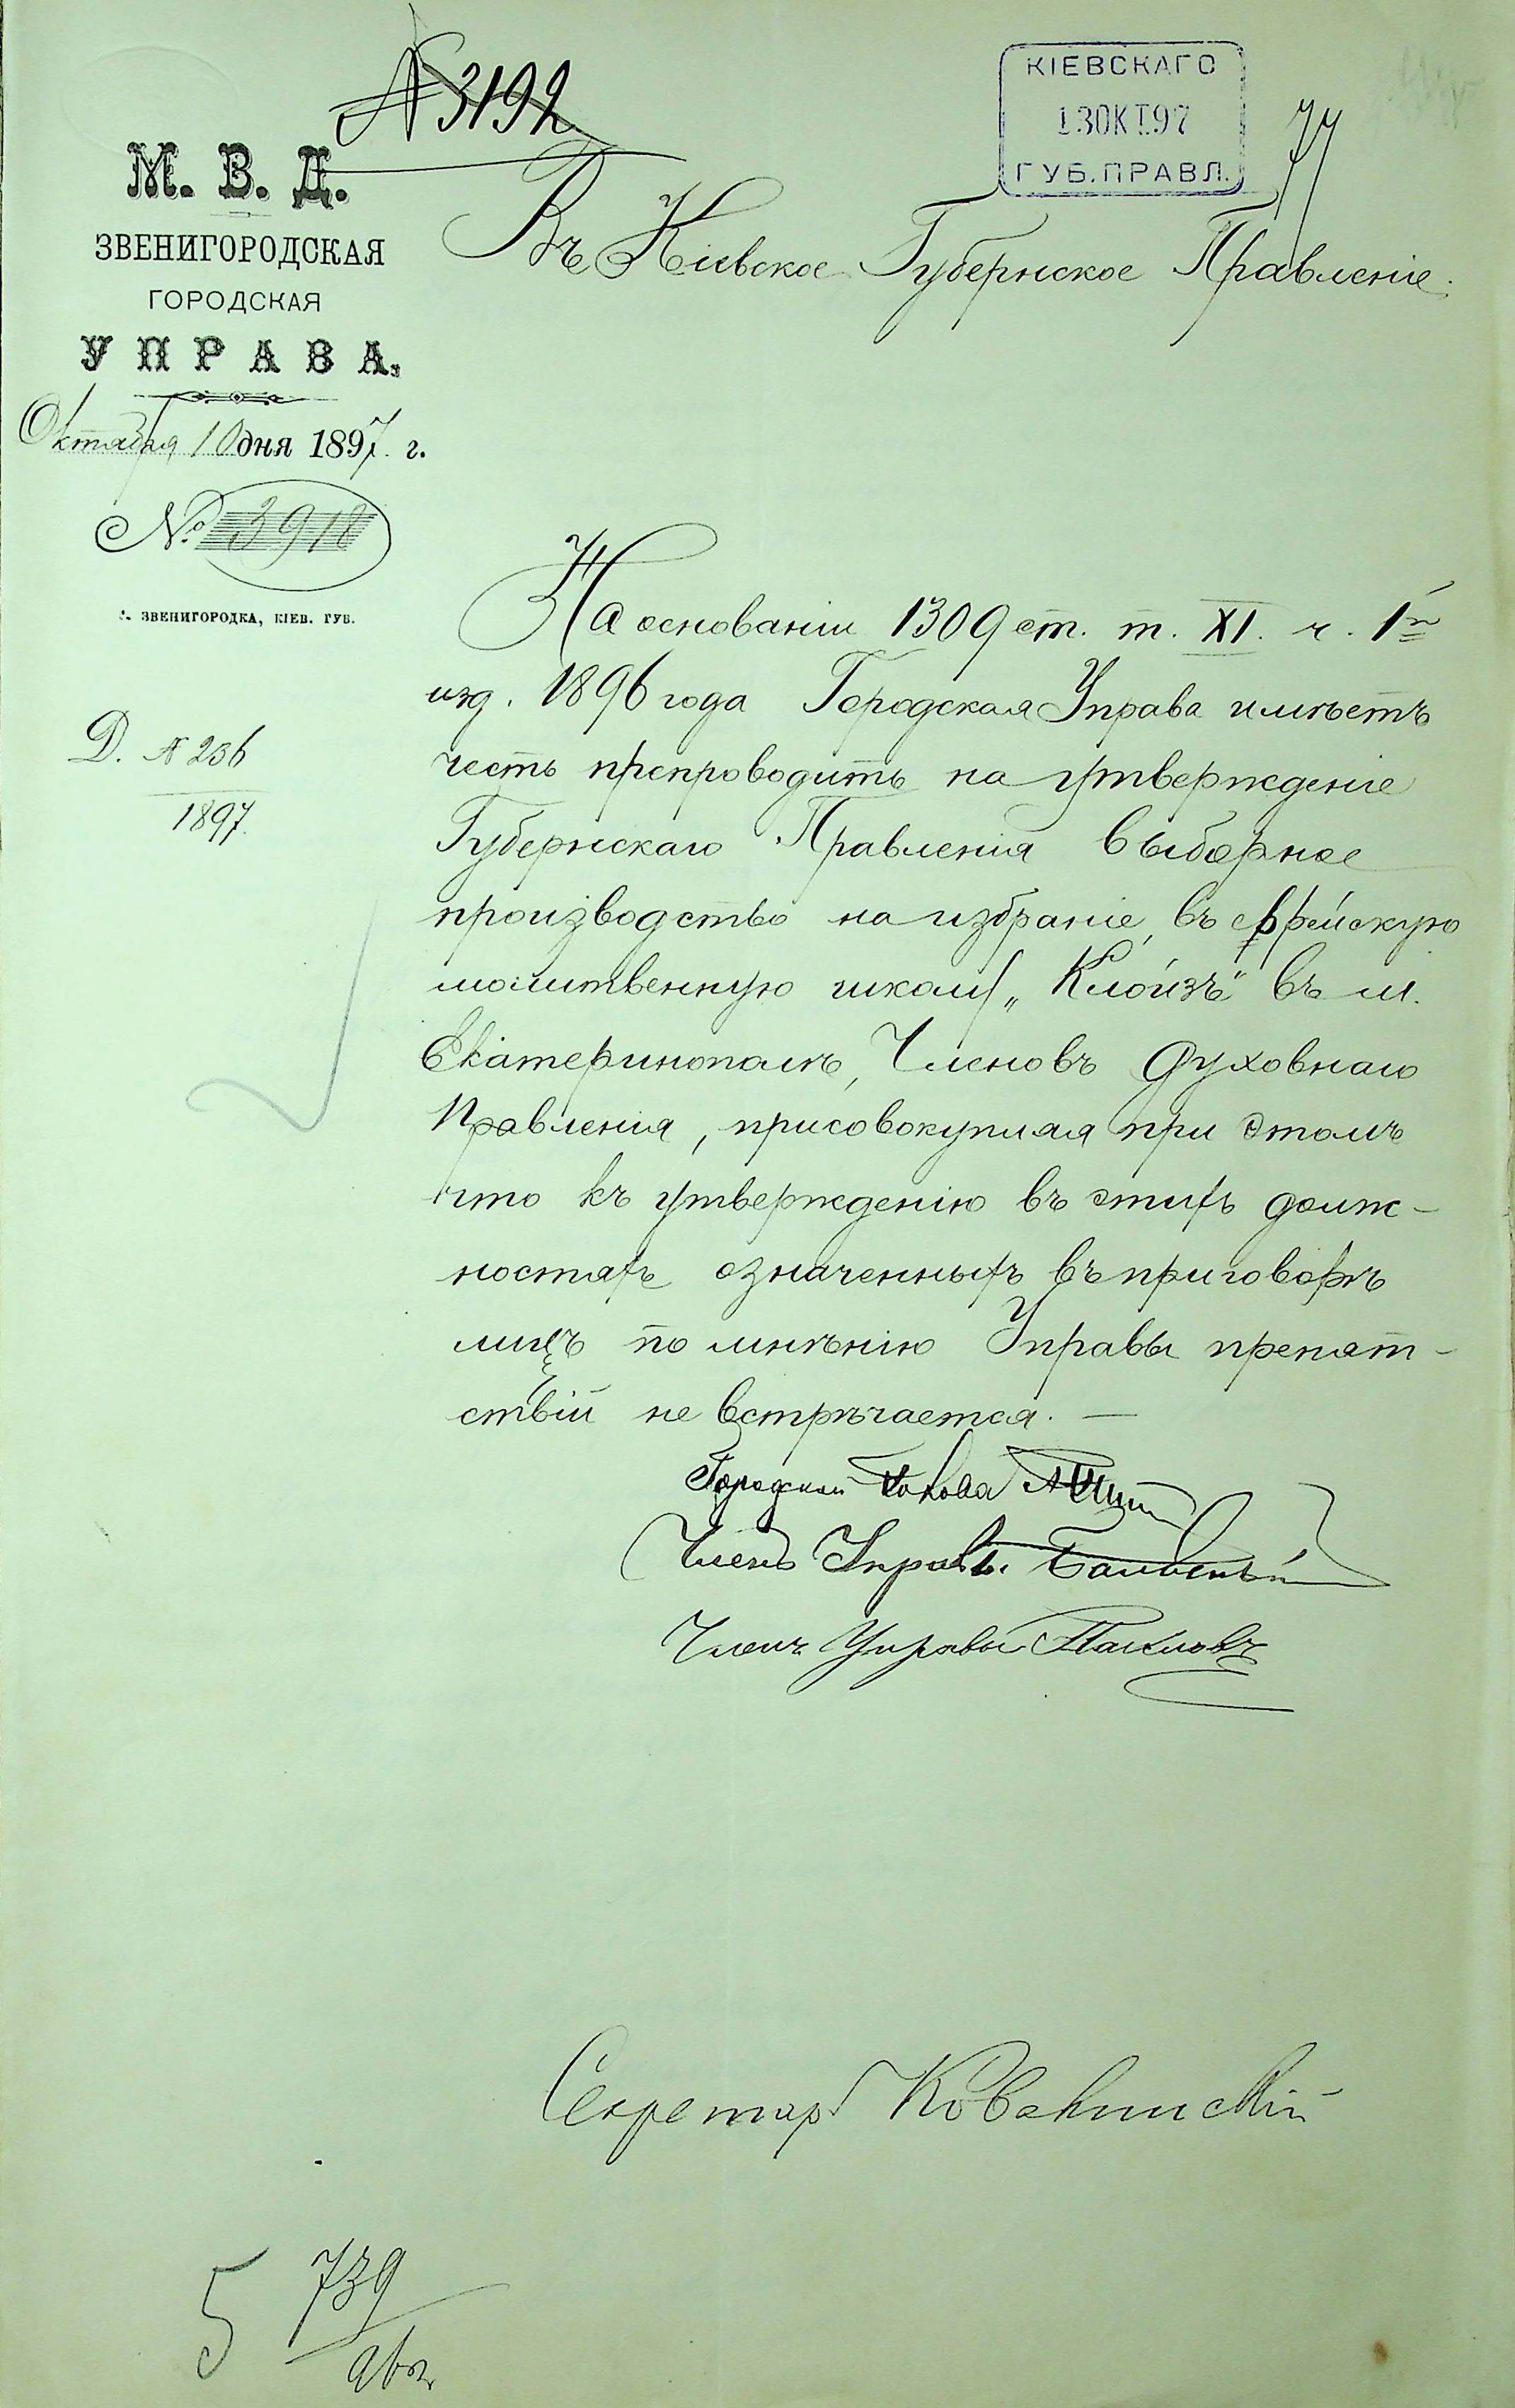 № 3192
КІЕВСКАГО
13 ОКТ. 97
ГУБ. ПРАВЛ.
77
М. В. Д.
ЗВЕНИГОРОДСКАЯ
ГОРОДСКАЯ
УПРАВА.
Октября 10 дня 1897 г.
№ 3918
г. ЗВЕНИГОРОДКА, КІЕВ. ГУБ.
Д. № 236
1897
Въ Кіевское Губернское Правленіе.
На основаніи 1309 ст. т. XI. ч. 1й
изд. 1896 года Городская Управа имѣетъ
честь препроводить на утвержденіе
Губернскаго Правленія выборное
производство на избраніе, въ еврейскую
молитвенную школу „Клойзъ" въ м.
Екатеринополѣ, Членовъ Духовнаго
Правленія, присовокупляя при этомъ
что къ утвержденію въ этихъ долж-
ностяхъ означенныхъ въ приговорѣ
лицъ по мнѣнію Управы препят-
ствій не встрѣчается. —
Городской Голова
Членъ Управы
Членъ Управы
Секретарь
5 739